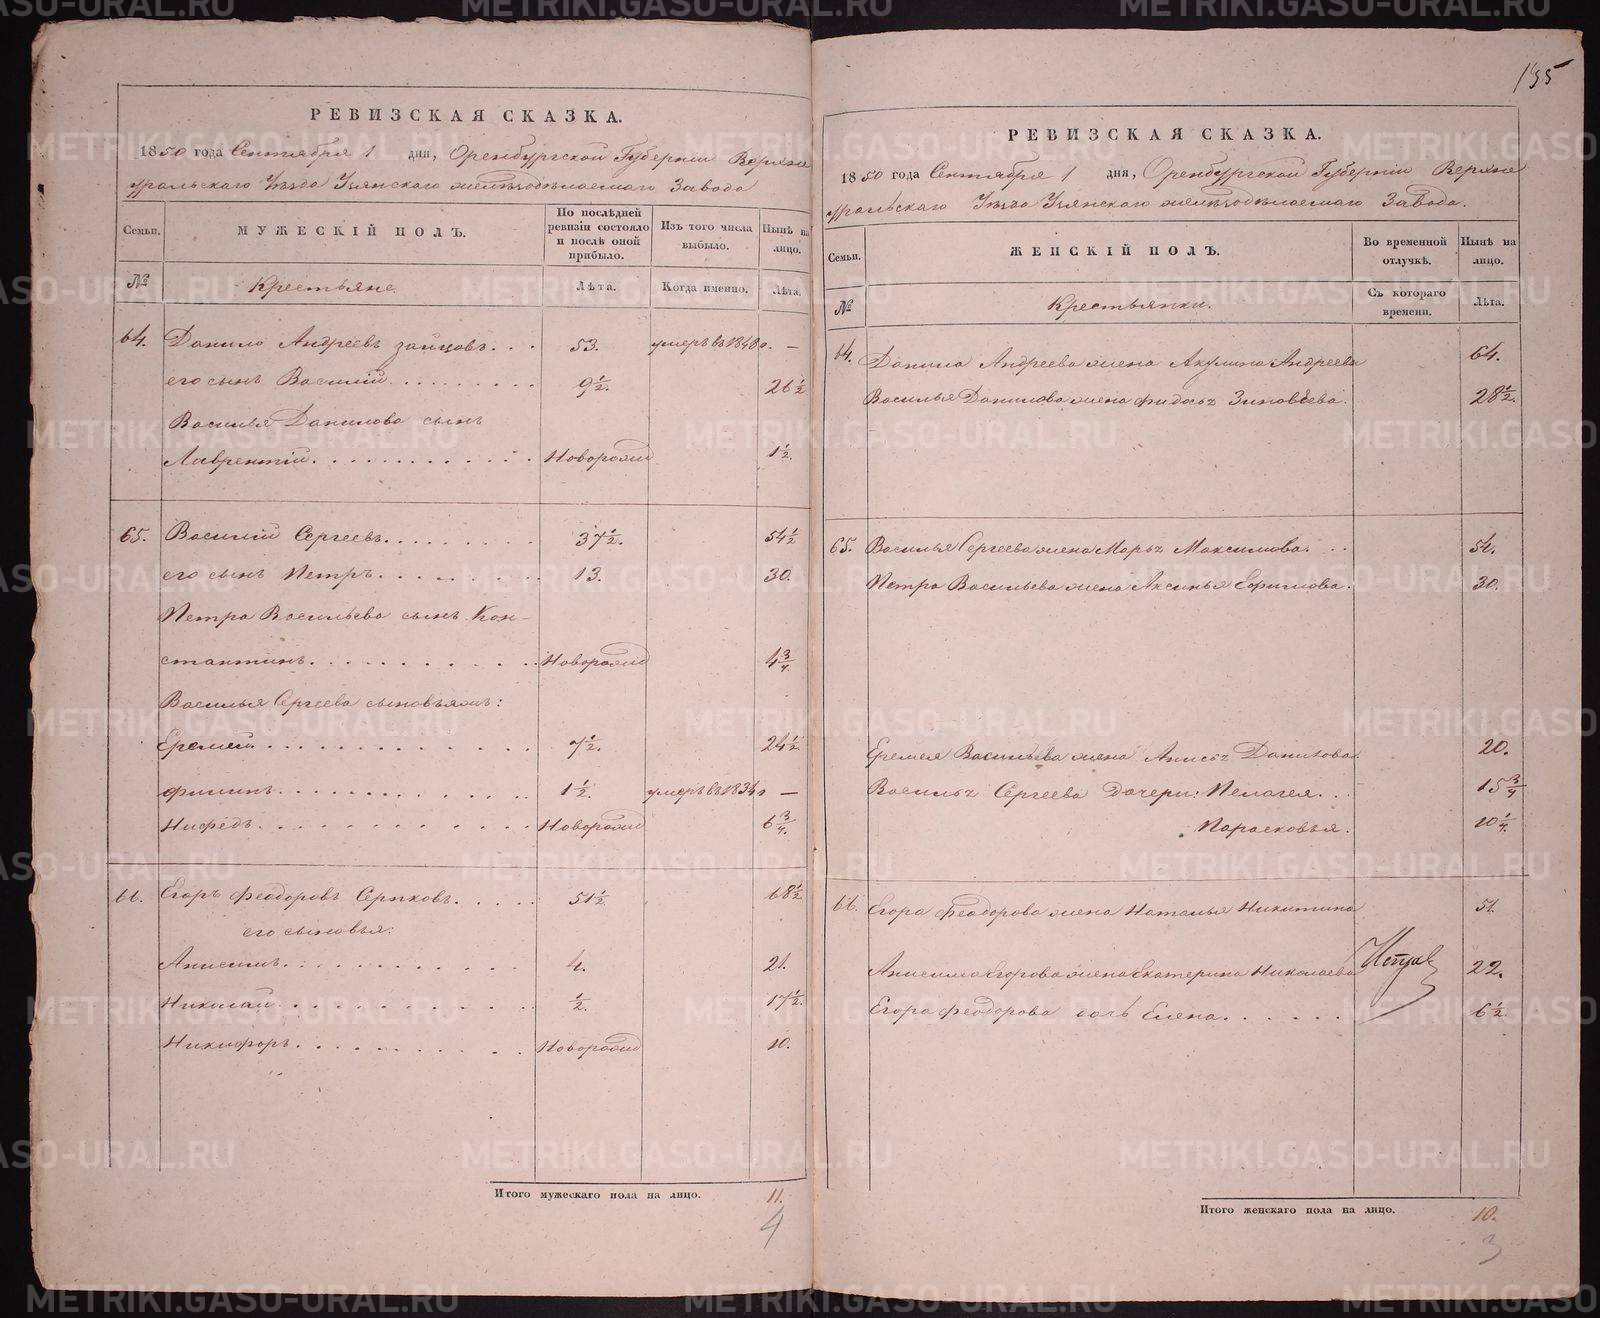 135
РЕВИЗСКАЯ СКАЗКА.
1850 года Сентября 1 дня, Оренбургской Губерніи Верхне
уральскаго Уѣзда Узянскаго желѣзодѣлаемаго Завода
Семьи.
МУЖЕСКІЙ ПОЛЪ.
По послѣдней ревизіи состояло и послѣ оной прибыло.
Изъ того числа выбыло.
Нынѣ на лицо.
№
Крестьяне
Лѣта.
Когда именно.
Лѣта.
64. Данило Андреевъ Зайцовъ... 53. умеръ въ 1848 г. —
его сынъ Василій......... 9½. 26½
Василья Данилова сынъ
Лаврентій............ Новорожд 1½.
65. Василій Сергеевъ......... 37½. 54½
его сынъ Петръ......... 13. 30.
Петра Васильева сынъ Кон-
стантинъ........... Новорожд 4¾
Василья Сергеева сыновьямъ:
Еремей............. 7½. 24½
Филипъ............. 1½. умеръ въ 1834 г —
Нифедъ............. Новорожд 6¾.
66. Егоръ Феодоровъ Серпковъ..... 51½ 68½
его сыновья:
Анисимъ............ 4. 21.
Николай............ ½. 17½.
Никифоръ........... Новорожд 10.
Итого мужескаго пола на лицо. 11.
4
РЕВИЗСКАЯ СКАЗКА.
1850 года Сентября 1 дня, Оренбургской Губерніи Верхне
уральскаго Уѣзда Узянскаго желѣзодѣлаемаго Завода.
Семьи.
ЖЕНСКІЙ ПОЛЪ.
Во временной отлучкѣ.
Нынѣ на лицо.
№
Крестьянки.
Съ котораго времени.
Лѣта.
64. Данила Андреева жена Акулина Андреева 64.
Василья Данилова жена Фидосья Зиновьева. 28½.
65. Василья Сергеева жена Марья Максимова... 54.
Петра Васильева жена Аксинья Ефимова. 30.
Еремея Васильева жена Анисья Данилова. 20.
Василья Сергеева дочери: Пелагея... 15¾
Парасковья. 10¼.
66. Егора Феодорова жена Наталья Никитина 51.
Анисима Егорова жена Екатерина Николаева 22.
Егора Феодорова дочь Елена....... 6½.
Итого женскаго пола на лицо. 10.
3
METRIKI.GASO-URAL.RU